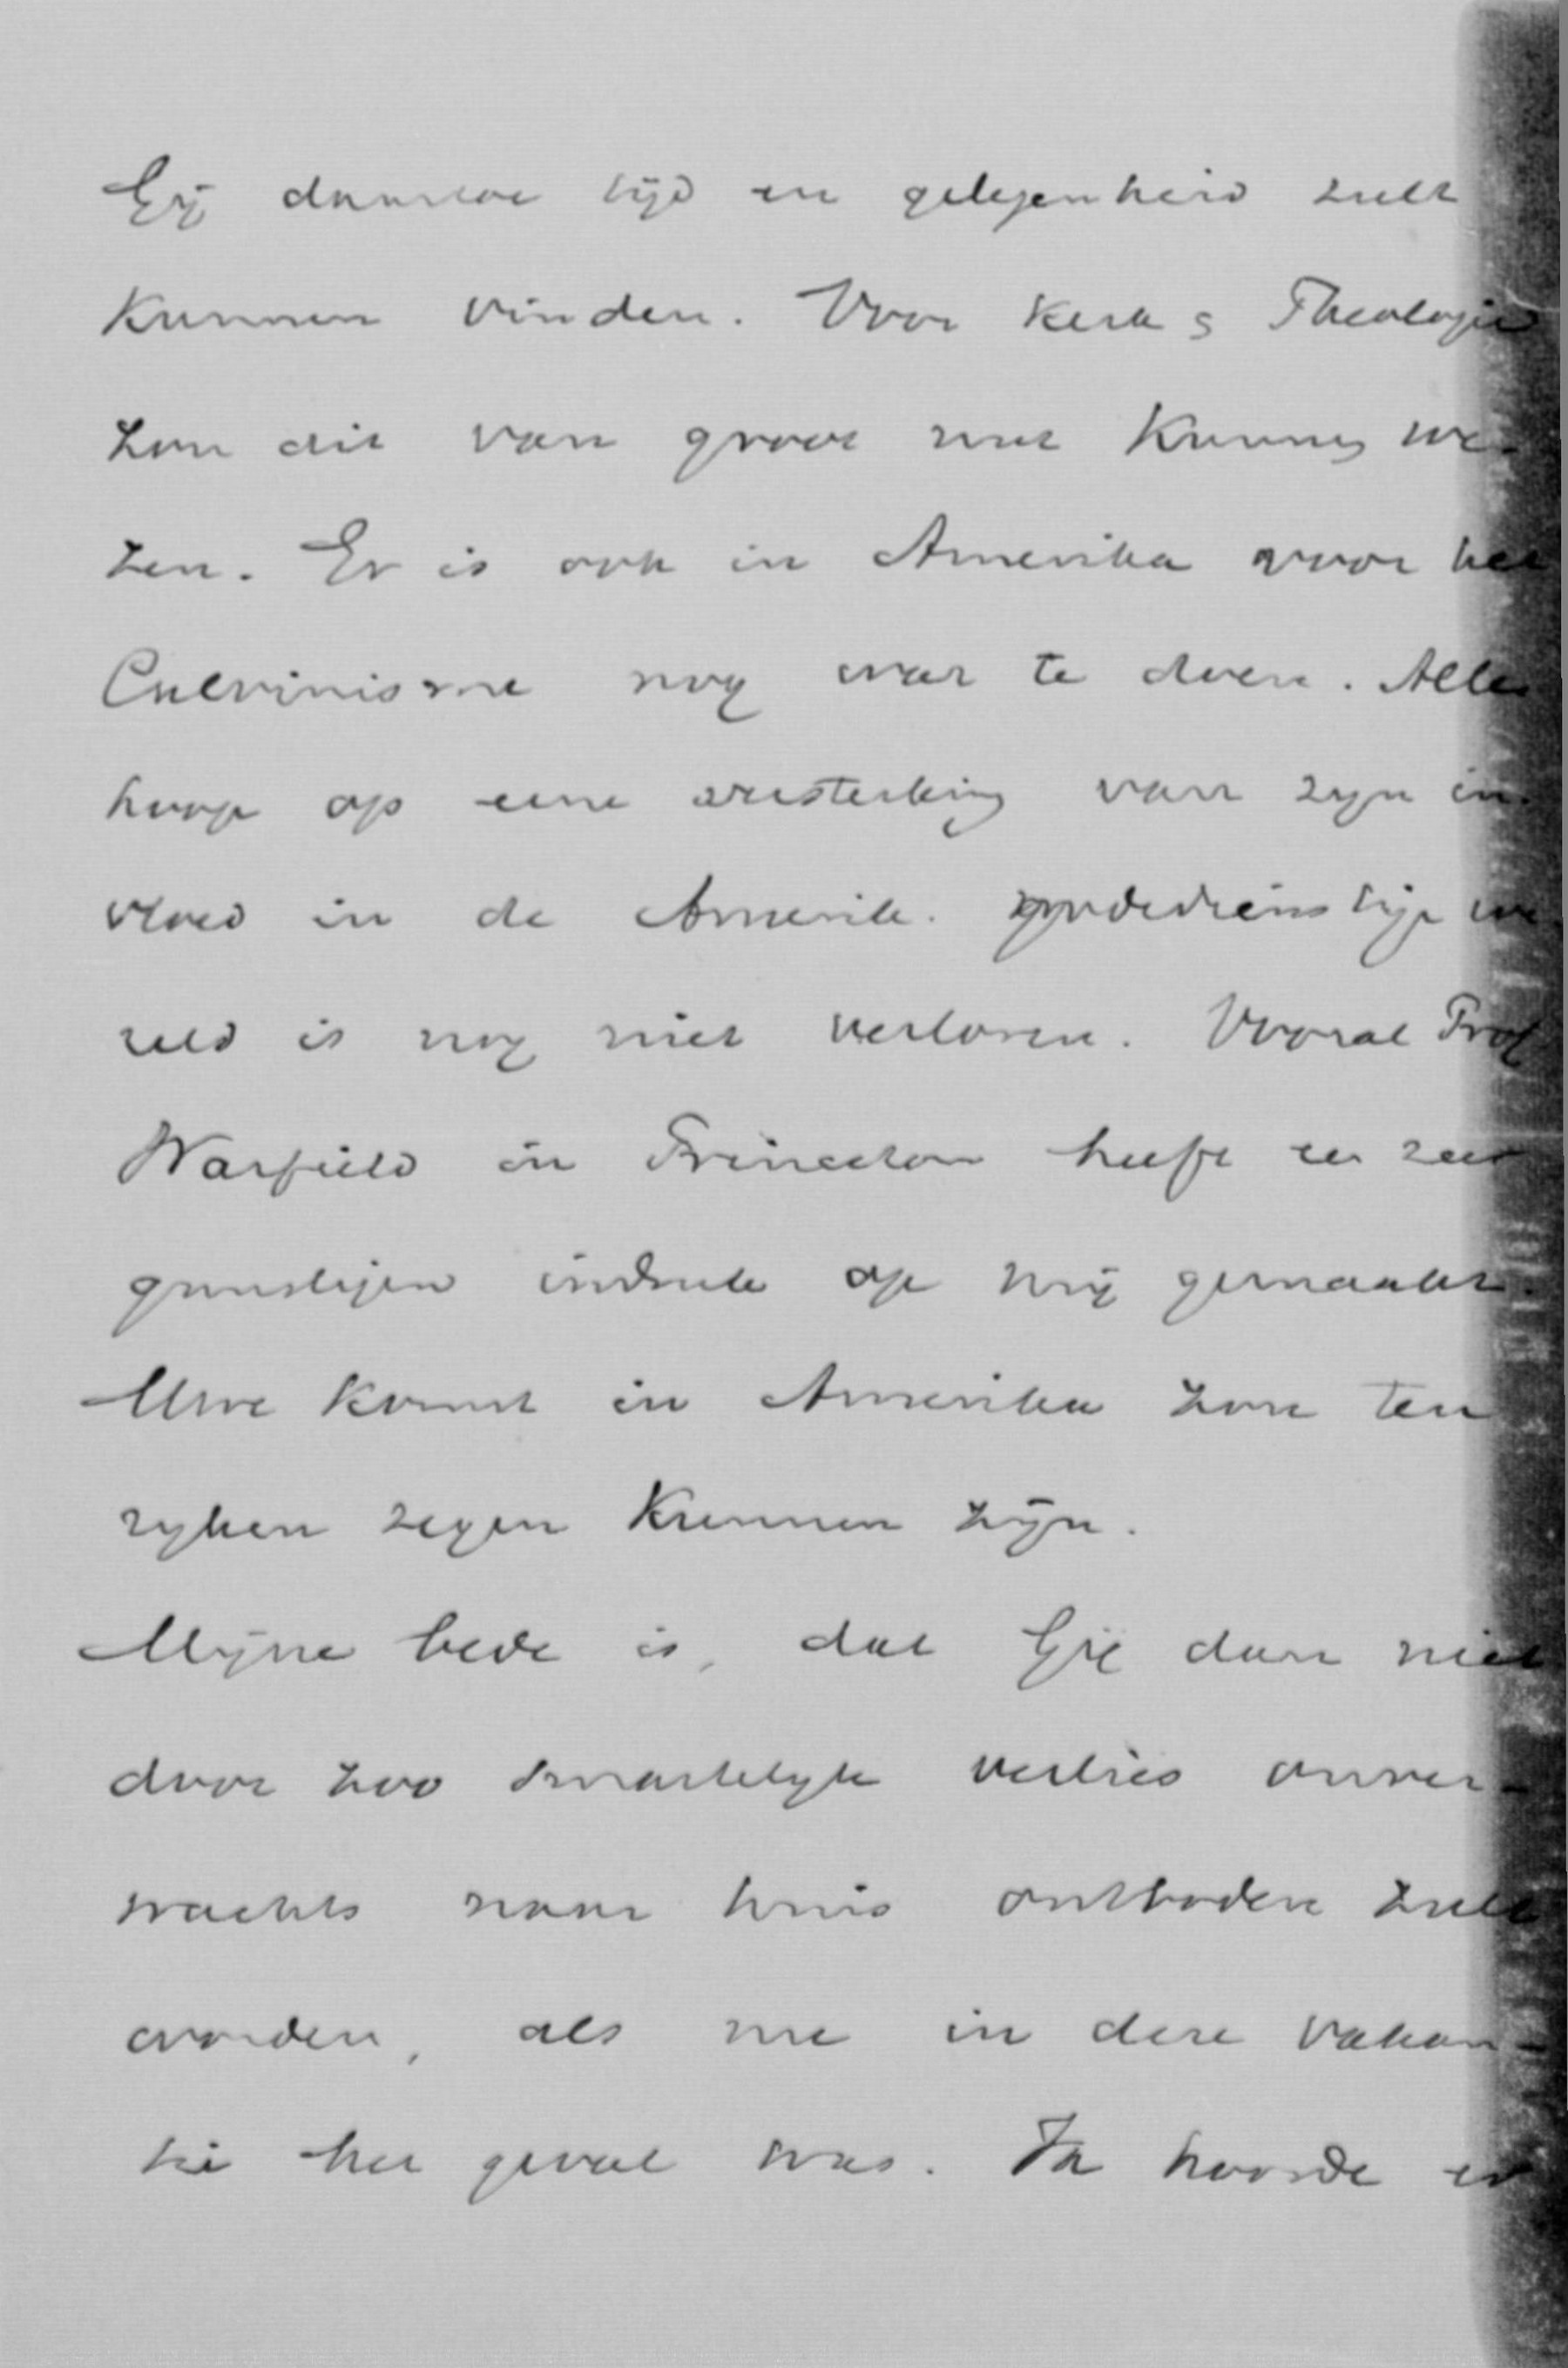 Gij daartoe tijd en gelegenheid zult
kunnen vinden. Voor kerk & Theologie
zou dit van groot nut kunnen we-
zen. Er is ook in Amerika voor het
Calvinisme nog wat te doen. Alle
hoop op eene versterking van zijn in-
vloed in de Amerik. godsdienstige we
reld is nog niet verloren. Vooral Prof
Warfield in Princeton heeft een zeer
gunstigen indruk op mij gemaakt.
Uwe komst in Amerika zou ten
rijken zegen kunnen zijn.
Mijne bede is, dat Gij dan niet
door zoo smartelijk verlies onver-
wachts naar huis ontboden zult
worden, als nu in deze vakan-
tie het geval was. Ik hoorde er